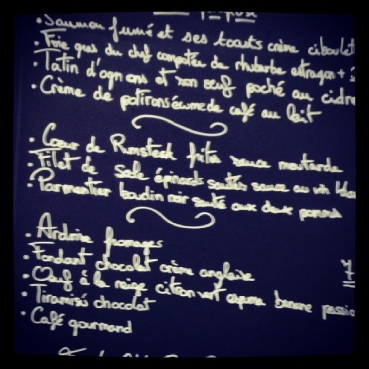 • Saumon fumé et ses toasts crème ciboulet
• Foie gras du chef compotée de rhubarbe estragon +
• Tatin d'ognons et son oeuf poché au cidre
• Crème de potirons écume de café au lait
• Coeur de Rumsteck frites sauce moutarde
• Filet de sole épinards sautés sauce au vin blan
• Parmentier boudin noir sauté aux deux pommes
• Ardoise fromages
• Fondant chocolat crème anglaise
• Oeuf à la neige citron vert banane passio
• Tiramisù chocolat
• Café gourmand
7